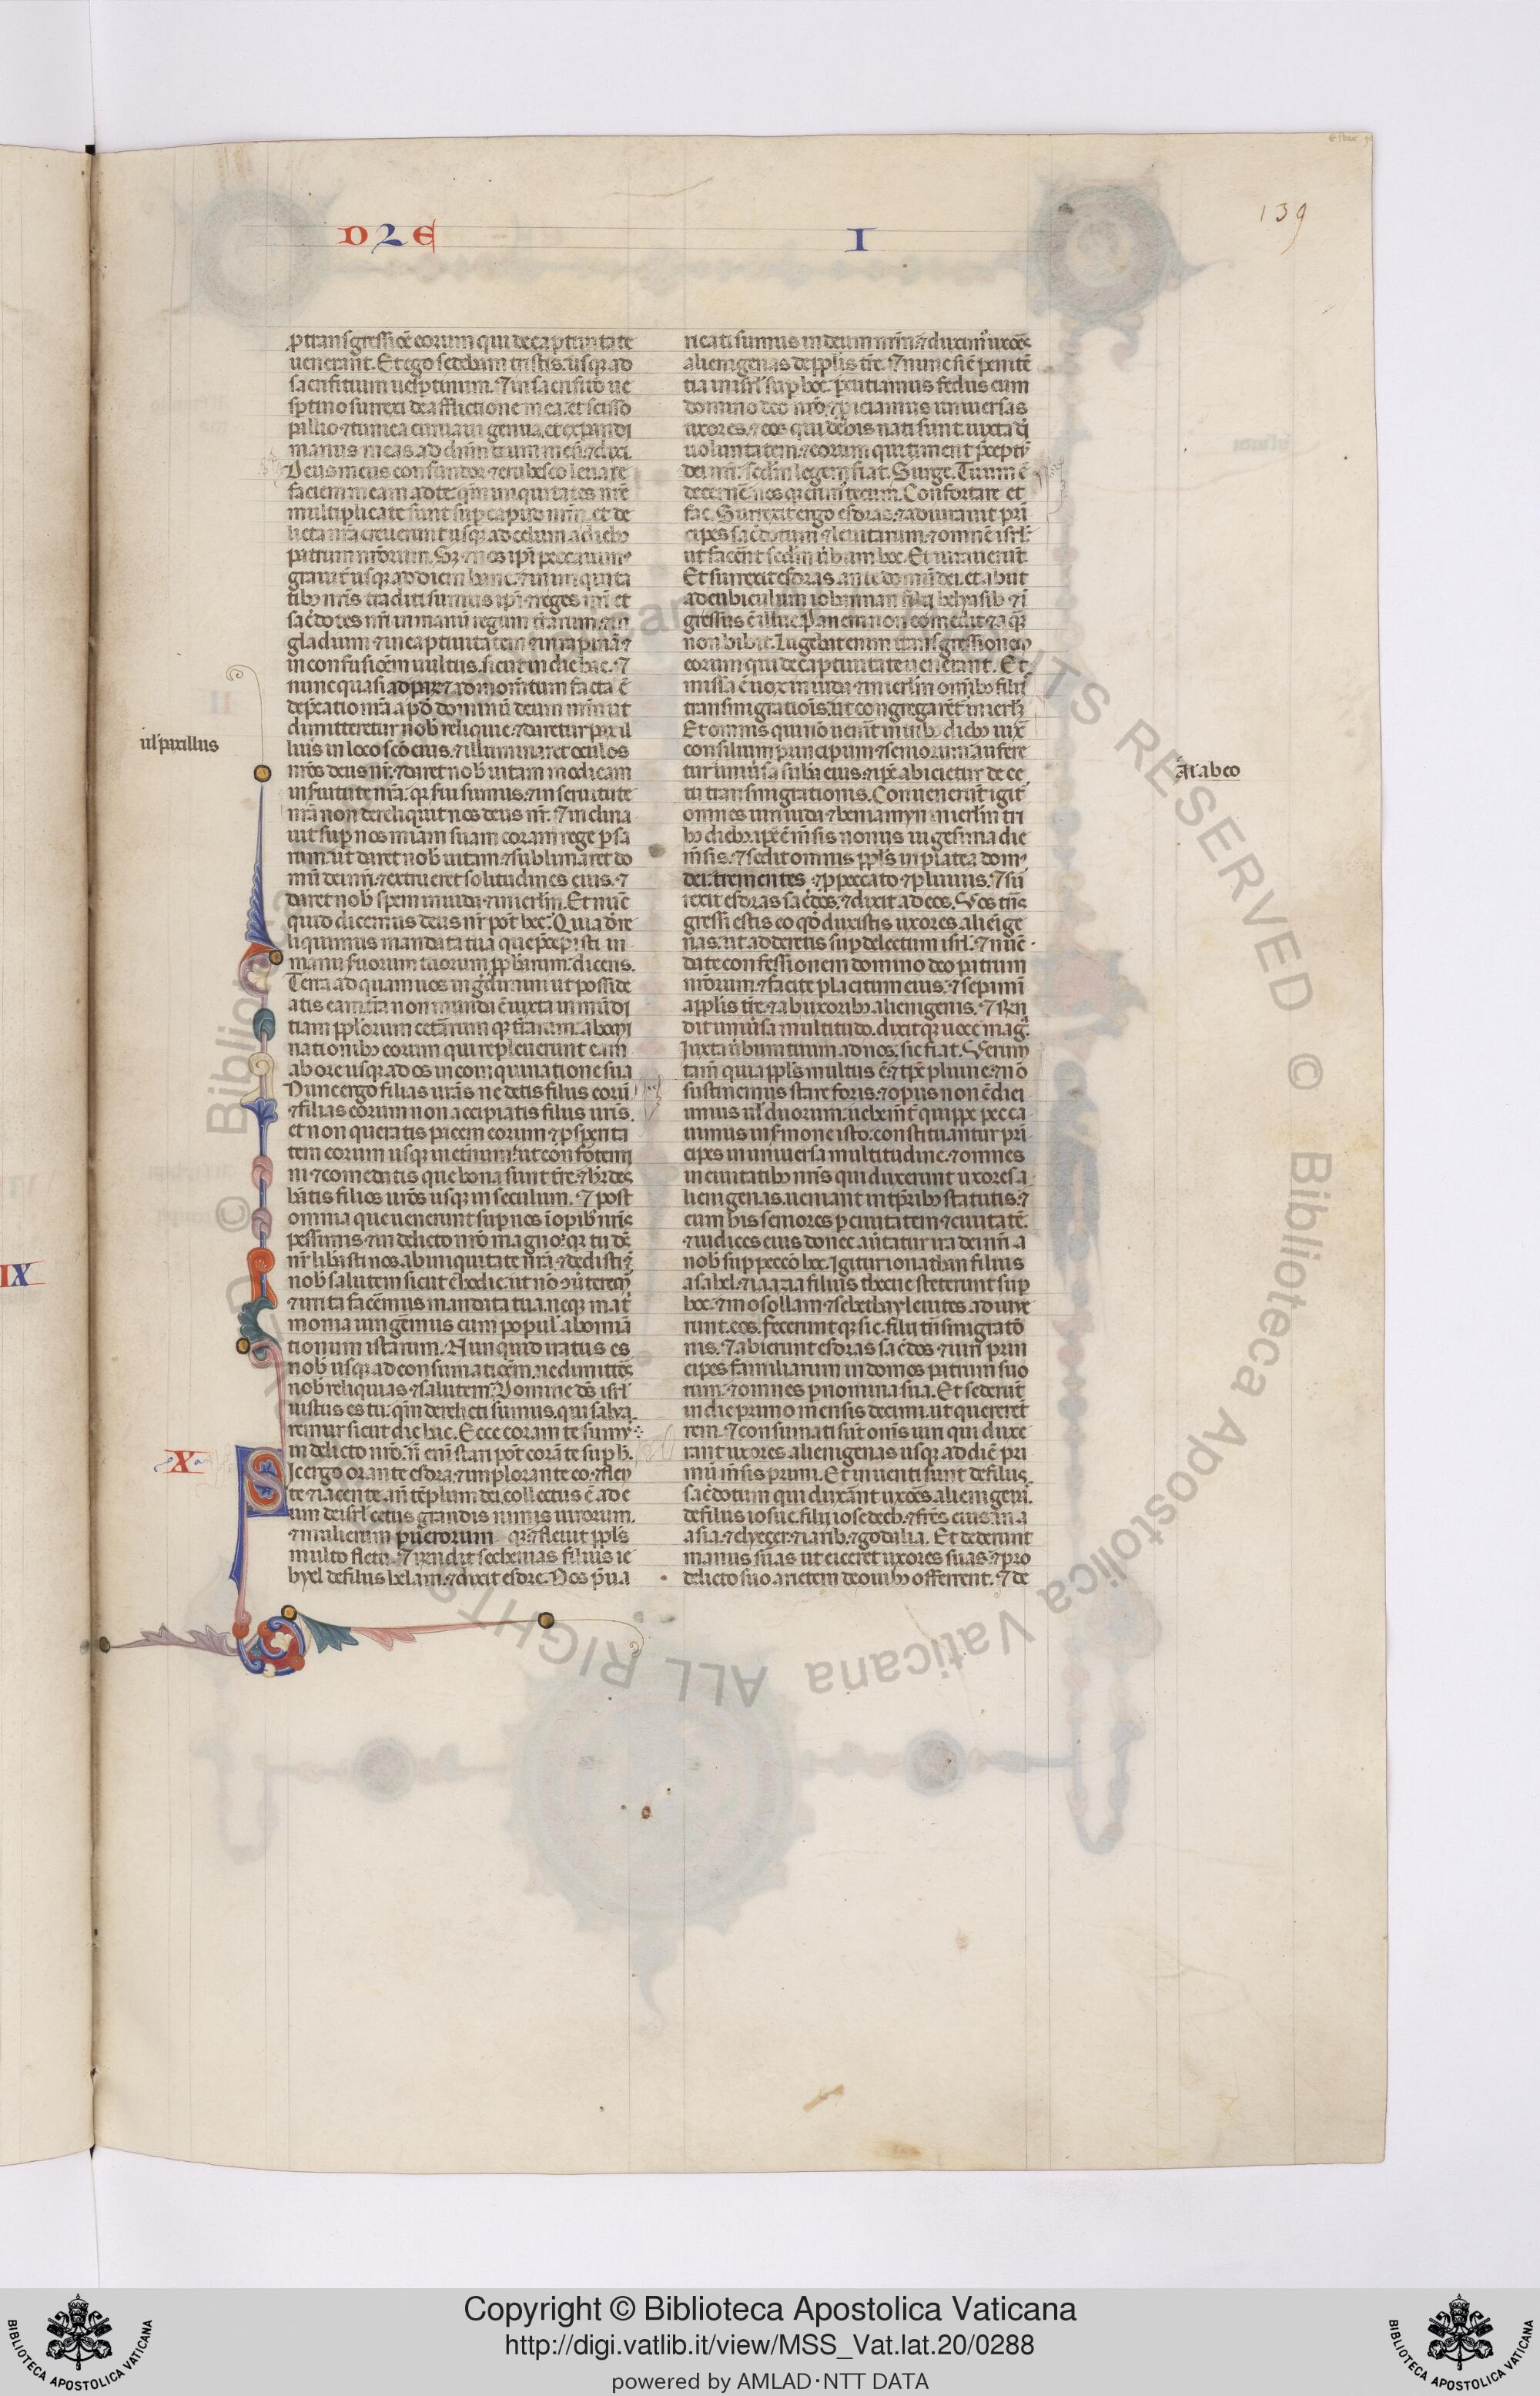 139
DRE
I
p̱ transgressiōe eorum qui de captiuitate
uenerant. Et ego sedebam tristis. usq; ad
sacrificium uesp̱tinum. ⁊ in sacrificio ue
sp̱tino surrexi de afflictione mea. et scisso
pallio ⁊ tunica curuaui genua. et expandi
manus meas ad dn̄m deum meū. ⁊ dixi.
Deus meus confundor ⁊ erubesco leuare
faciem meam ad te. qm̄ iniquitates nr̄e
multiplicate sunt sup̱ caput nr̄m. et de
licta nr̄a creuerunt usq; ad celum a dieb;
patrum nr̄orum. S; ⁊ nos ip̄i peccauim᾽
grauit᾽ usq; ad diem hanc. ⁊ in iniquita
tib; nr̄is traditi sumus ip̄i ⁊ reges nr̄i et
sac̄dotes nr̄i in manū regum t̄rarum. ⁊ in
gladium ⁊ in captiuitatem ⁊ in rapinā ⁊
in confusiōem uultus. sicut in die hac. ⁊
nunc quasi ad par᾽ ⁊ ad mom̄tum facta ē
dep̄catio nr̄a apd̄ dominū deum nr̄m ut
dimitterentur nob̄ reliquie. ⁊ daretur paxil
lus in loco sc̄o eius. ⁊ illuminaret oculos
nr̄os deus nr̄. ⁊ daret nob̄ uitam modicam
in s̄uitute nr̄a. q; s̄ui sumus. ⁊ in seruitute
nr̄a non dereliquit nos deus nr̄. ⁊ inclina
uit sup̱ nos mīam suam coram rege p̱sa
rum. ut daret nob̄ uitam. ⁊ sublimaret do
mū dei nr̄i. ⁊ extrueret solitudines eius. ⁊
daret nob̄ spem in iuda ⁊ in ierlm̄. Et nūc
quid dicemus deus nr̄ post hec. Quia d̄re
liquimus mandata tua que p̄cepisti in
manu s̄uorum tuorum pp̄harum. dicens.
Terra ad quam uos ingredimini ut posside
atis eam. t̄ra non munda ē iuxta inmūdi
tiam pp̄lorum cet̄arum q; t̄rarum. abomi
nationib; eorum qui repleuerunt eam
ab ore usq; ad os in coinquinatione sua
Nunc ergo filias ur̄as ne detis filiis eorū
⁊ filias eorum non accipiatis filiis ur̄is.
et non queratis pacem eorum ⁊ p̱sperita
tem eorum usq; in et̄num. ut confortemi
ni ⁊ comedatis que bona sunt t̄re. ⁊ h̄edes
h̄atis filios ur̄os usq; in seculum. ⁊ post
omnia que uenerunt sup̱ nos ī opib; nr̄is
pessimis. ⁊ in delicto nr̄o magno. q; tu dē
nr̄ lib̄asti nos ab iniquitate nr̄a. ⁊ dedisti
nob̄ salutem sicut ē hodie. ut nō ꝯuterem᾽
⁊ irrita fac̄emus mandata tua. neq; mat̄
monia iung̱emus cum popul᾽ abomīa
tionum istarum. Nunquid iratus es
nob̄ usq; ad consumatiōem. ne dimittes
nob̄ reliquias ⁊ salutem. Domine ds̄ isrl̄
iustus es tu. qm̄ derelicti sumus. qui salua
remur sicut die hac. Ecce coram te sum᾽
in delicto nr̄o. n̄ enī stari pōt corā te sup̱ h̄.
Sic ergo orante esdra. ⁊ implorante eo. ⁊ flen
te ⁊ iacente an̄ tēplum dei. collectus ē ad e
um de isrl̄ cetus grandis nimis uirorum.
⁊ mulierum puerorum q; ⁊ fleuit pp̄ls
multo fletu. ⁊ rn̄dit sechenias filius ie
hyel de filiis helam. ⁊ dixit esdre. Nos p̄ua
ricati sumus in deum nr̄m ⁊ duxim᾽ uxōes
alienigenas de pp̄lis t̄re. ⁊ nunc si ē penitē
tia in isrl̄ sup̱ hoc. p̱cutiamus fedus cum
domino deo nr̄o. ⁊ p̱iciamus uniuersas
uxores. ⁊ eos qui de his nati sunt. iuxta
uoluntatem. ⁊ eorum qui timent p̄ceptū
dei nr̄i. sc̄dm legem fiat. Surge. Tuum ē
decerne. nos q; erim᾽ tecum. Confortare et
fac. Surrexit ergo esdras. ⁊ adiurauit prin
cipes sac̄dotum ⁊ leuitarum. ⁊ omnē isrl̄.
ut facerent sc̄dm ūbum hoc. Et iurauerūt.
Et surrexit esdras ante domū dei. et abiit
ad cubiculum iohannan filij helyasib ⁊ ī
gressus ē illuc. Panem non comedit ⁊ aq̄
non bibit. lugebat enim transgressionem
eorum qui de captiuitate uenerant. Et
missa ē uox in iuda. ⁊ in ierlm̄ omīb; filiis
transmigratiois. ut congregarēt᾽ in ierlm̄
Et omnis qui nō uenit᾽ in trib; dieb; iux̄
consilium principum ⁊ seniorum. aufere
tur uniūsa sub̄a eius. ⁊ ip̄e abicietur de ce
tu transmigrationis. Conuenerūt igit᾽
omnes uiri iuda. ⁊ beniamyn in ierlm̄ tri
b; dieb;. ip̄e ē mēsis nonus uigesima die
mēsis. ⁊ sedit omnis pp̄ls in platea dom᾽
dei. trementes ⁊ p̱ peccato ⁊ pluuiis. ⁊ sur
rexit esdras sac̄dos. ⁊ dixit ad eos. Uos trn̄s
gressi estis eo qd̄ duxistis uxores alienige
nas. ut adderetis sup̱ delectum isrl̄. ⁊ nūc
date confessionem domino deo patrum
nr̄orum. ⁊ facite placitum eius. ⁊ sepami
a pp̄lis t̄re. ⁊ ab uxorib; alienigenis. ⁊ rn̄
dit uniūsa multitudo. dixit q; uoce mag̃.
Juxta ūbum tuum ad nos. sic fiat. Uerum
tam̄ quia pp̄ls multus ē. ⁊ tp̄s pluuie. ⁊ nō
sustinemus stare foris. ⁊ opus non ē diei
unius ul᾽ duorum. uehem̄t᾽ quippe pecca
uimus in s̄mone isto. constituantur prin
cipes in uniuersa multitudine. ⁊ omnes
in ciuitatib; nr̄is qui duxerunt uxores a
lienigenas. ueniant in tp̄rib; statutis. ⁊
cum his seniores p̱ ciuitatem ⁊ ciuitatē.
⁊ iudices eius donec au̇tatur ira dei nr̄i a
nob̄ sup̱ peccō hoc. Igitur ionathan filius
asahel. ⁊ iaazia filius thecue steterunt sup̱
hoc. ⁊ mosollam. ⁊ sebethay leuites. adiuue
runt. eos. fecerunt q; sic. filij trn̄smigratō
nis. ⁊ abierunt esdras sac̄dos ⁊ uiri prin
cipes familiarum in domos patrum suo
rum. ⁊ omnes p̱ nomina sua. Et sederūt
in die primo mensis decimi. ut quererēt
rem. ⁊ consumati sūt om̄s uiri qui duxe
rant uxores alienigenas usq; ad diē pri
mū mēsis primi. Et inuenti sunt de filiis
sac̄dotum qui duxānt uxōes alienigenas.
de filiis iosue. filij iosedech. ⁊ frēs eius ma
asia. ⁊ elyezer. ⁊ iarib. ⁊ godalia. Et dederunt
manus suas ut eicerēt uxores suas. ⁊ pro
delicto suo arietem de ouib; offerrent. ⁊ de
ul᾽ paxillus
X
IX
Copyright © Biblioteca Apostolica Vaticana
http://digi.vatlib.it/view/MSS_Vat.lat.20/0288
powered by AMLAD·NTT DATA
BIBLIOTECA APOSTOLICA VATICANA
BIBLIOTECA APOSTOLICA VATICANA
© Biblioteca Apostolica Vaticana ALL RIGHTS RESERVED